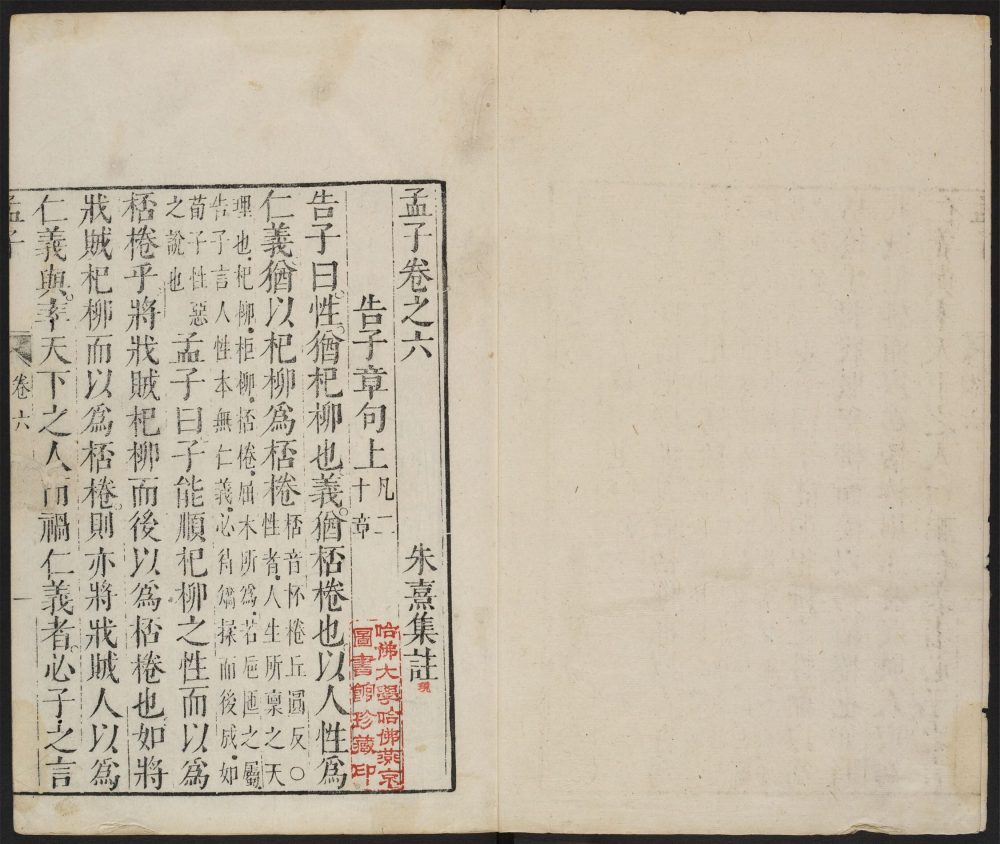 孟子卷之六　朱熹集註
告子章句上
凡二
十章
告子曰性猶杞柳也義猶桮棬也以人性爲
仁義猶以杞柳爲桮棬
桮音杯棬丘圓反○
性者人生所稟之天
理也杞柳柜柳桮棬屈木所爲若卮匜之屬
告子言人性本無仁義必待矯揉而後成如
荀子性惡
之說也
孟子曰子能順杞柳之性而以爲
桮棬乎將戕賊杞柳而後以爲桮棬也如將
戕賊杞柳而以爲桮棬則亦將戕賊人以爲
仁義與率天下之人而禍仁義者必子之言
孟子　卷六　一
哈佛大學哈佛燕京
圖書館珍藏印